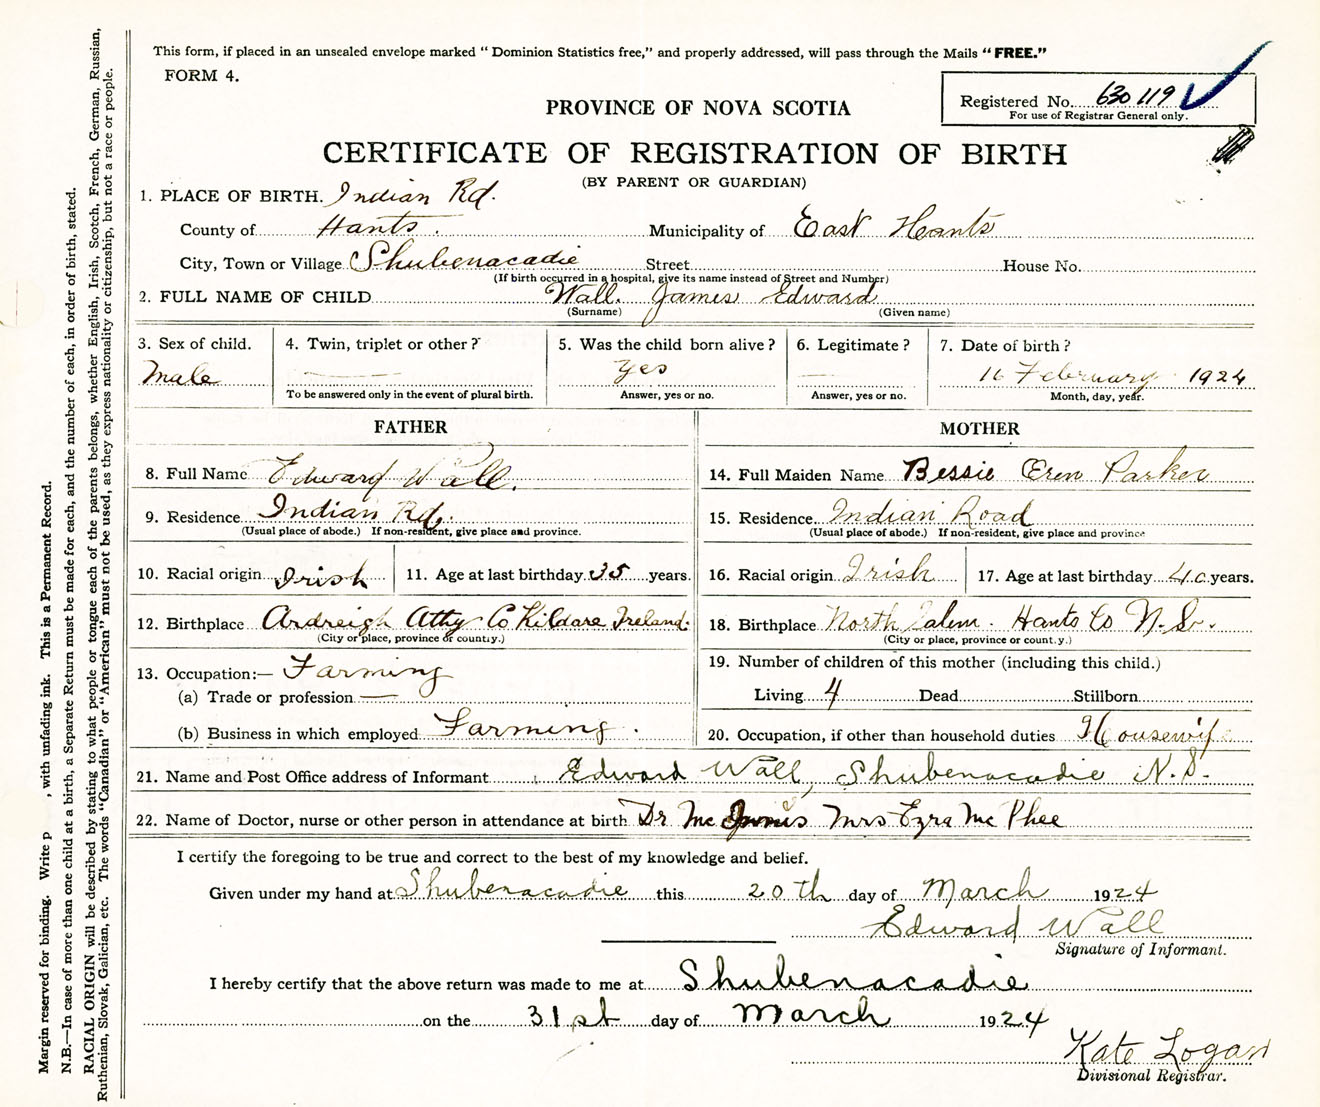 This form, if placed in an unsealed envelope marked "Dominion Statistics free," and properly addressed, will pass through the Mails "FREE."
FORM 4.
Registered No. 630119
For use of Registrar General only.
PROVINCE OF NOVA SCOTIA
CERTIFICATE OF REGISTRATION OF BIRTH
(BY PARENT OR GUARDIAN)
1. PLACE OF BIRTH. Indian Rd.
County of Hants. Municipality of East Hants
City, Town or Village Shubenacadie Street House No.
(If birth occurred in a hospital, give its name instead of Street and Number)
2. FULL NAME OF CHILD Wall. James Edward
(Surname) (Given name)
3. Sex of child. 4. Twin, triplet or other? 5. Was the child born alive? 6. Legitimate? 7. Date of birth?
Male — Yes — 16 February 1924
To be answered only in the event of plural birth. Answer, yes or no. Answer, yes or no. Month, day, year.
FATHER MOTHER
8. Full Name Edward Wall. 14. Full Maiden Name Bessie Eren Parker
9. Residence Indian Rd. 15. Residence Indian Road
(Usual place of abode.) If non-resident, give place and province. (Usual place of abode.) If non-resident, give place and province
10. Racial origin Irish 11. Age at last birthday 35 years. 16. Racial origin Irish 17. Age at last birthday 40 years.
12. Birthplace Ardreigh Athy Co Kildare Ireland. 18. Birthplace North Salem. Hants Co N.S.
(City or place, province or country.) (City or place, province or country.)
13. Occupation:— Farming 19. Number of children of this mother (including this child.)
(a) Trade or profession — Living 4 Dead Stillborn
(b) Business in which employed Farming. 20. Occupation, if other than household duties Housewife
21. Name and Post Office address of Informant Edward Wall, Shubenacadie N.S.
22. Name of Doctor, nurse or other person in attendance at birth Dr Mc Mrs Ezra McPhee
I certify the foregoing to be true and correct to the best of my knowledge and belief.
Given under my hand at Shubenacadie this 20th day of March 1924
Edward Wall
Signature of Informant.
I hereby certify that the above return was made to me at Shubenacadie
on the 31st day of March 1924
Kate Logan
Divisional Registrar.
Margin reserved for binding. Write p , with unfading ink. This is a Permanent Record.
N.B.—In case of more than one child at a birth, a Separate Return must be made for each, and the number of each, in order of birth, stated.
RACIAL ORIGIN will be described by stating to what people or tongue each of the parents belongs, whether English, Irish, Scotch, French, German, Russian,
Ruthenian, Slovak, Galician, etc. The words "Canadian" or "American" must not be used, as they express nationality or citizenship, but not a race or people.